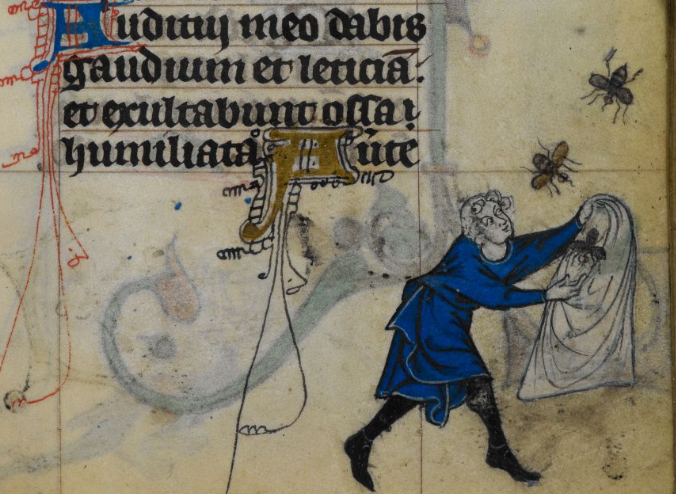 Auditui meo dabis
gaudium et leticiā:
et exultabunt ossa
humiliata A ūte